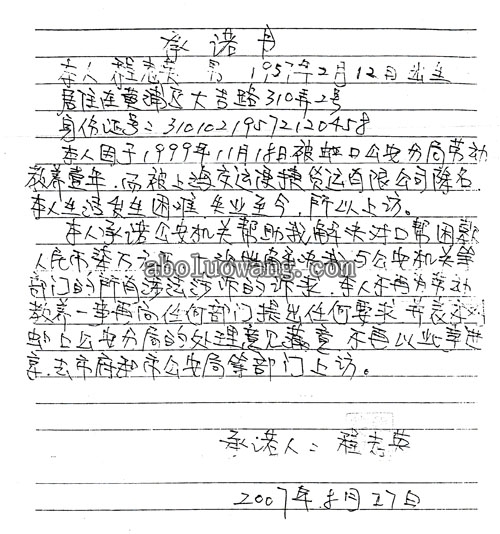 承诺书
本人程志英 男 1957年2月12日出生
居住在黄浦区大吉路310弄2号
身份证号：31010219572120458
本人因于1999年11月18日被虹口公安分局劳动
教养壹年，而被上海交运便捷货运有限公司除名
本人生活发生困难，失业至今，所以上访。
本人承诺公安机关帮助我解决对口帮困款
人民币 与公安机关等
部门的所有涉法涉诉的诉求，本人不再为劳动
教养一事再向任何部门提出任何要求，并表示对
虹口公安分局的处理意见满意，不再以此事进
京、去市府和市公安局等部门上访。
www.aboluowang.com
承诺人：程志英
2007年8月27日